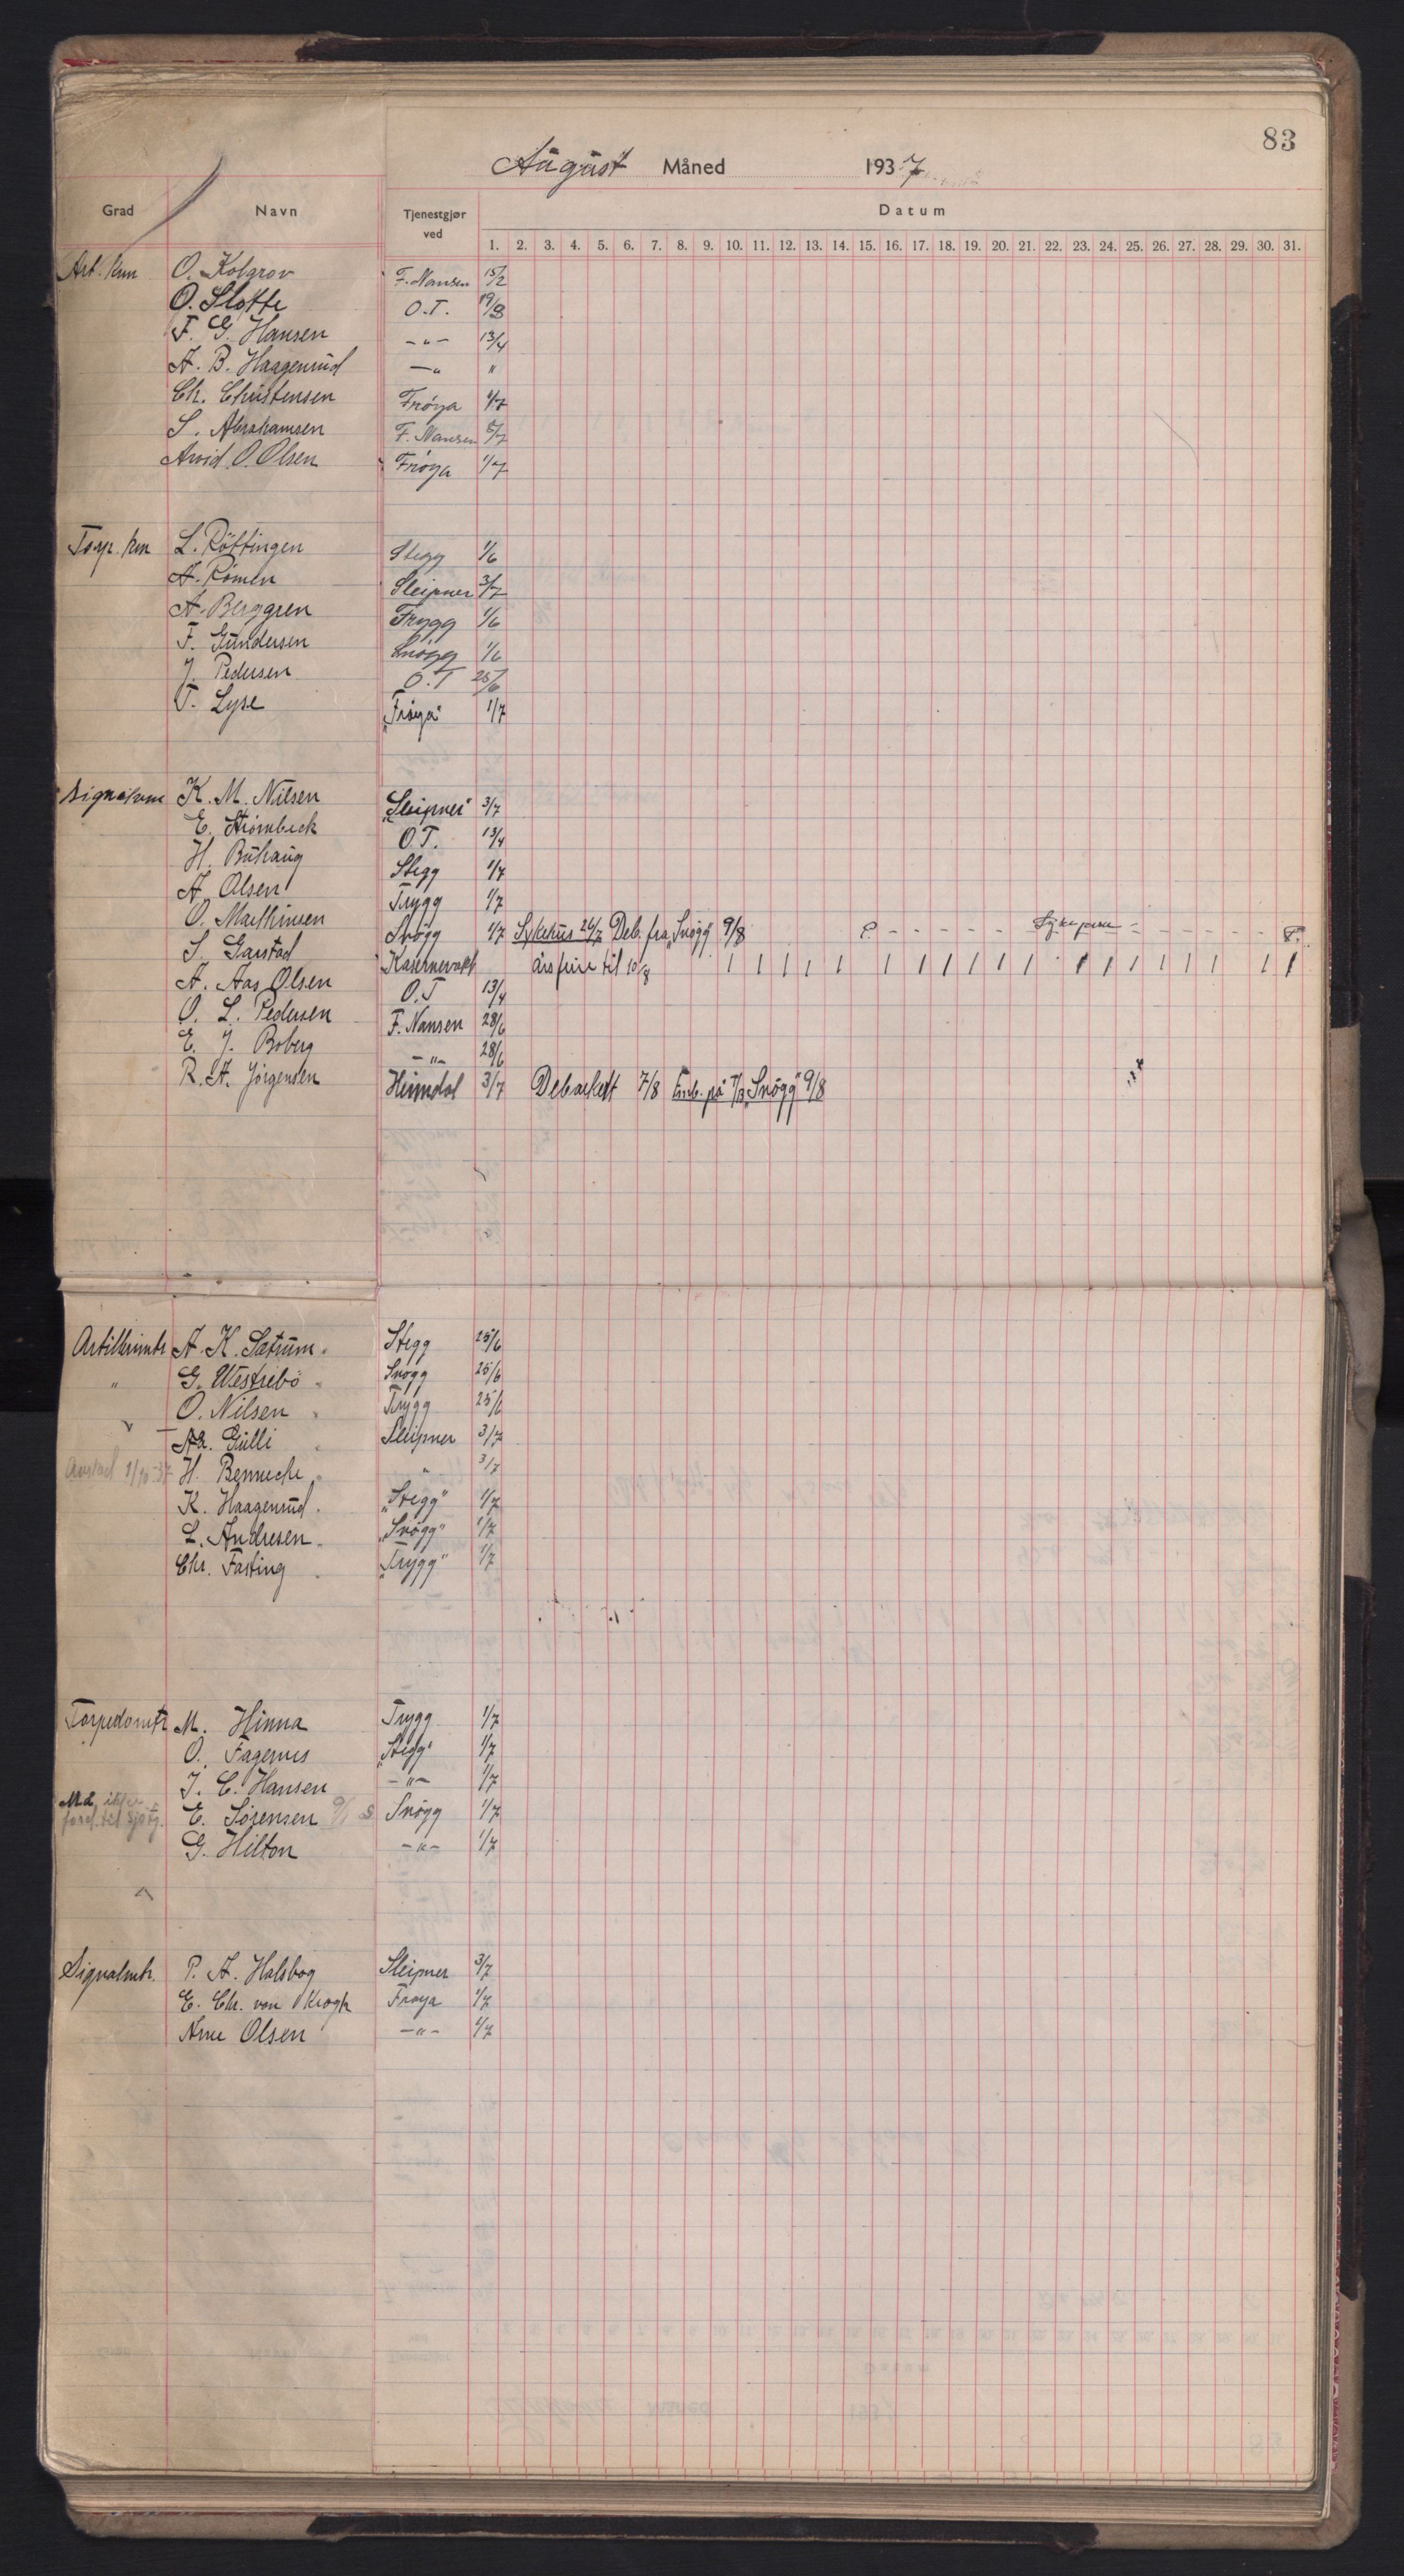 83
August Måned 1937
Grad Navn Tjenestgjør ved Datum
1. 2. 3. 4. 5. 6. 7. 8. 9. 10. 11. 12. 13. 14. 15. 16. 17. 18. 19. 20. 21. 22. 23. 24. 25. 26. 27. 28. 29. 30. 31.
Art. kvm O. Kolgrov F. Nansen 15/2
O. Slotte O.T. 19/8
F. G. Hansen -"- 13/4
A. B. Haagensrud -" "
Ch. Christensen Frøya 1/7
S. Abrahamsen F. Nansen 8/7
Arvid O. Olsen Frøya 1/7
Torp. kvm L. Röttingen Stegg 1/6
A. Römen Sleipner 3/7
A. Berggren Trygg 1/6
F. Gundersen Snögg 1/6
J. Pedersen O.T 25/6
T. Lyse "Frøya" 1/7
Signalkvm K. M. Nilsen "Sleipner" 3/7
E. Strömbeck O.T. 13/4
H. Buhaug Stegg 1/7
A. Olsen Trygg 1/7
O. Mathinsen Snögg 1/7 Sykehus 26/7 Deb. fra "Snögg" 9/8 P. - - - - - Sykeperm - - - - - - F.
S. Garstad Kasernevakt års ferie til 10/8 1 1 1 1 1 1 1 1 1 1 1 1 1 1 1 1 1 1 1 1
A. Aas Olsen O.T 13/4
O. L. Pedersen F. Nansen 28/6
E. J. Boberg -"- 28/6
R. A. Jörgensen Heimdal 3/7 Debarkert 7/8 Emb. på T/B "Snögg" 9/8
Artillerimtr A. K. Sætrum. Stegg 25/6
" G. Westrebö Snögg 25/6
O. Nilsen Trygg 25/6
Aa. Gulli Sleipner 3/7
Avsked 1/10-37 H. Benneche " 3/7
K. Haagensrud. "Stegg" 1/7
L. Andresen. "Snögg" 1/7
Chr. Fasting "Trygg" 1/7
Torpedomtr M. Hinna Trygg 1/7
O. Fagernes "Stegg" 1/7
J. C. Hansen -"- 1/7
Må ikke
E. Sörensen Snögg 1/7
G. Hilton -"- 1/7
Signalmtr. P. A. Halsbog Sleipner 3/7
E. Chr. von Krogh Frøya 1/7
Arne Olsen -"- 1/7